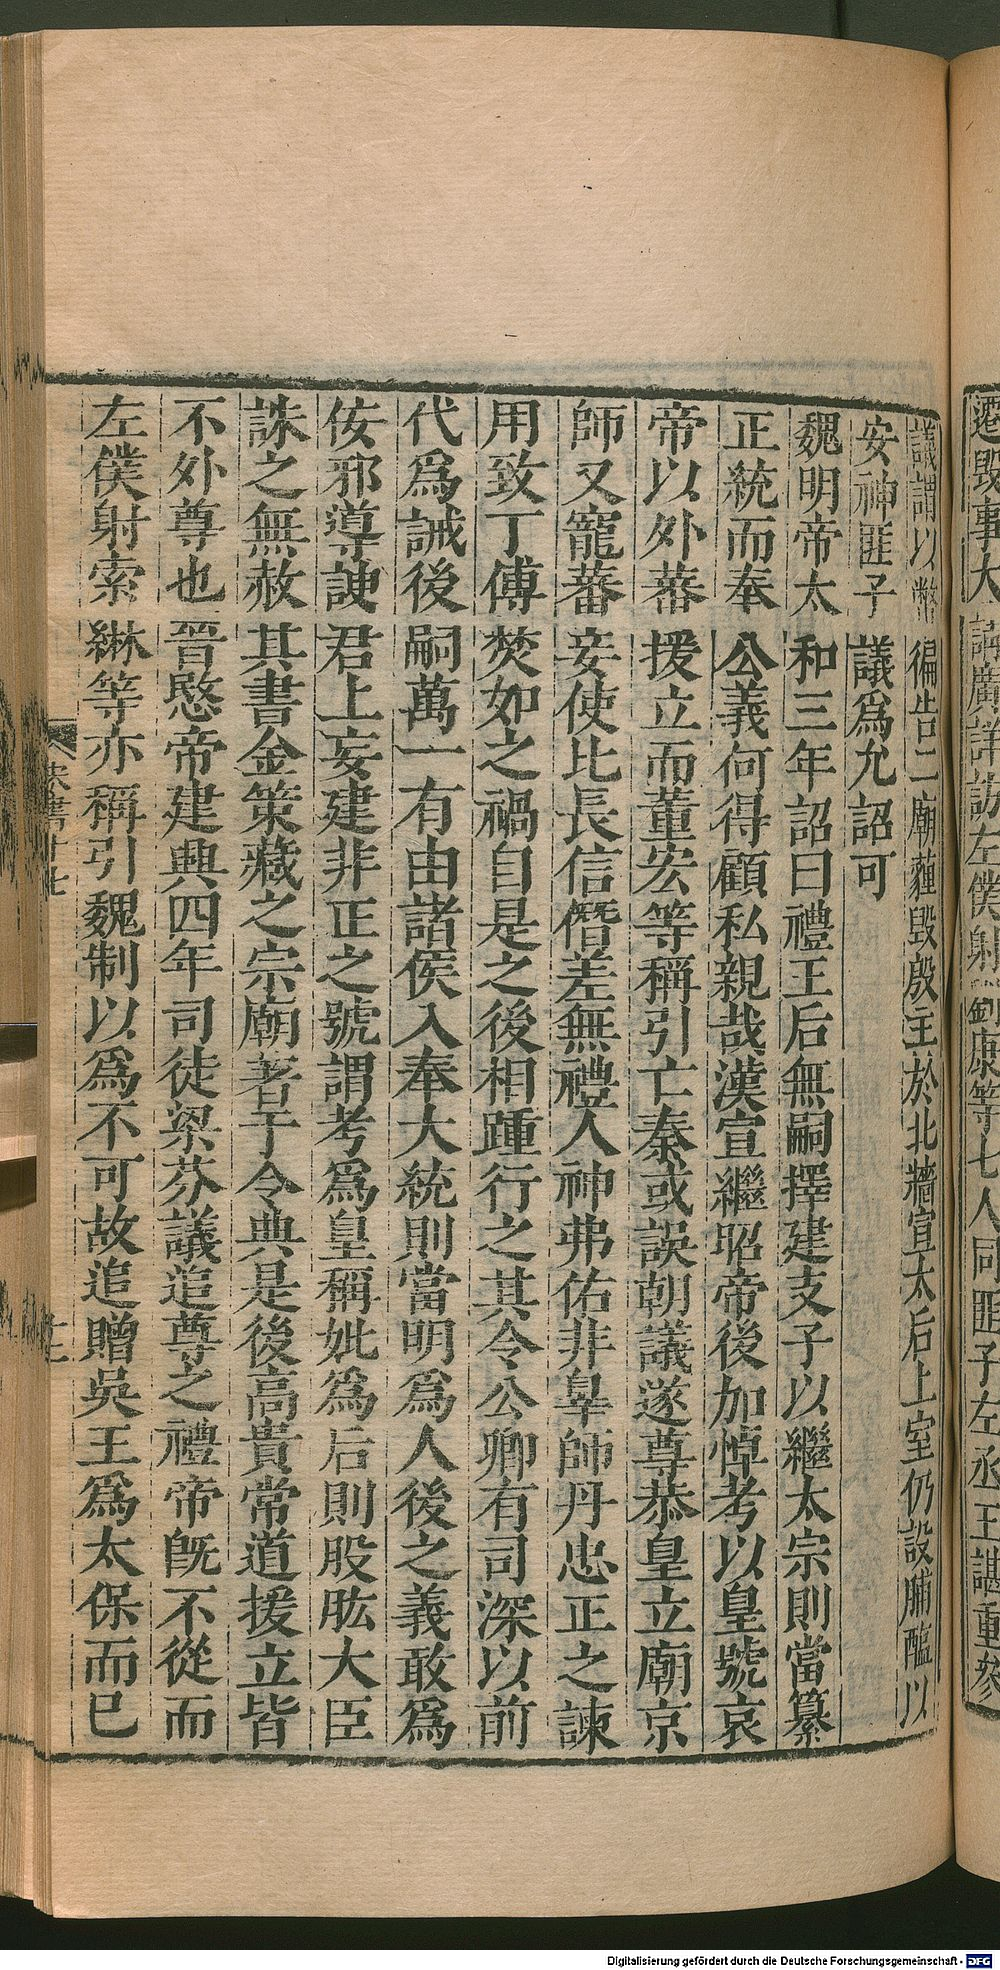 遷毀事大 詩廣詳訪左僕射劉康等七人同匪子左丞王諶重參
議謂以幣徧告二廟薶毀殷主於北牆宣太后上室仍設脯醢以
安神匪子議爲允詔可
魏明帝太和三年詔曰禮王后無嗣擇建支子以繼太宗則當纂
正統而奉公義何得顧私親哉漢宣繼昭帝後加悼考以皇號哀
帝以外蕃援立而董宏等稱引亡秦或誤朝議遂尊恭皇立廟京
師又寵蕃妾使比長信僭差無禮人神弗佑非辠師丹忠正之諫
用致丁傅焚如之禍自是之後相踵行之其令公卿有司深以前
代爲誡後嗣萬一有由諸侯入奉大統則當明爲人後之義敢爲
佞邪導諛君上妄建非正之號謂考爲皇稱妣爲后則股肱大臣
誅之無赦其書金策藏之宗廟著于令典是後高貴常道援立皆
不外尊也晉愍帝建興四年司徒梁芬議追尊之禮帝旣不從而
左僕射索綝等亦稱引魏制以爲不可故追贈吳王爲太保而已
宋書十七
十二
Digitalisierung gefördert durch die Deutsche Forschungsgemeinschaft - DFG